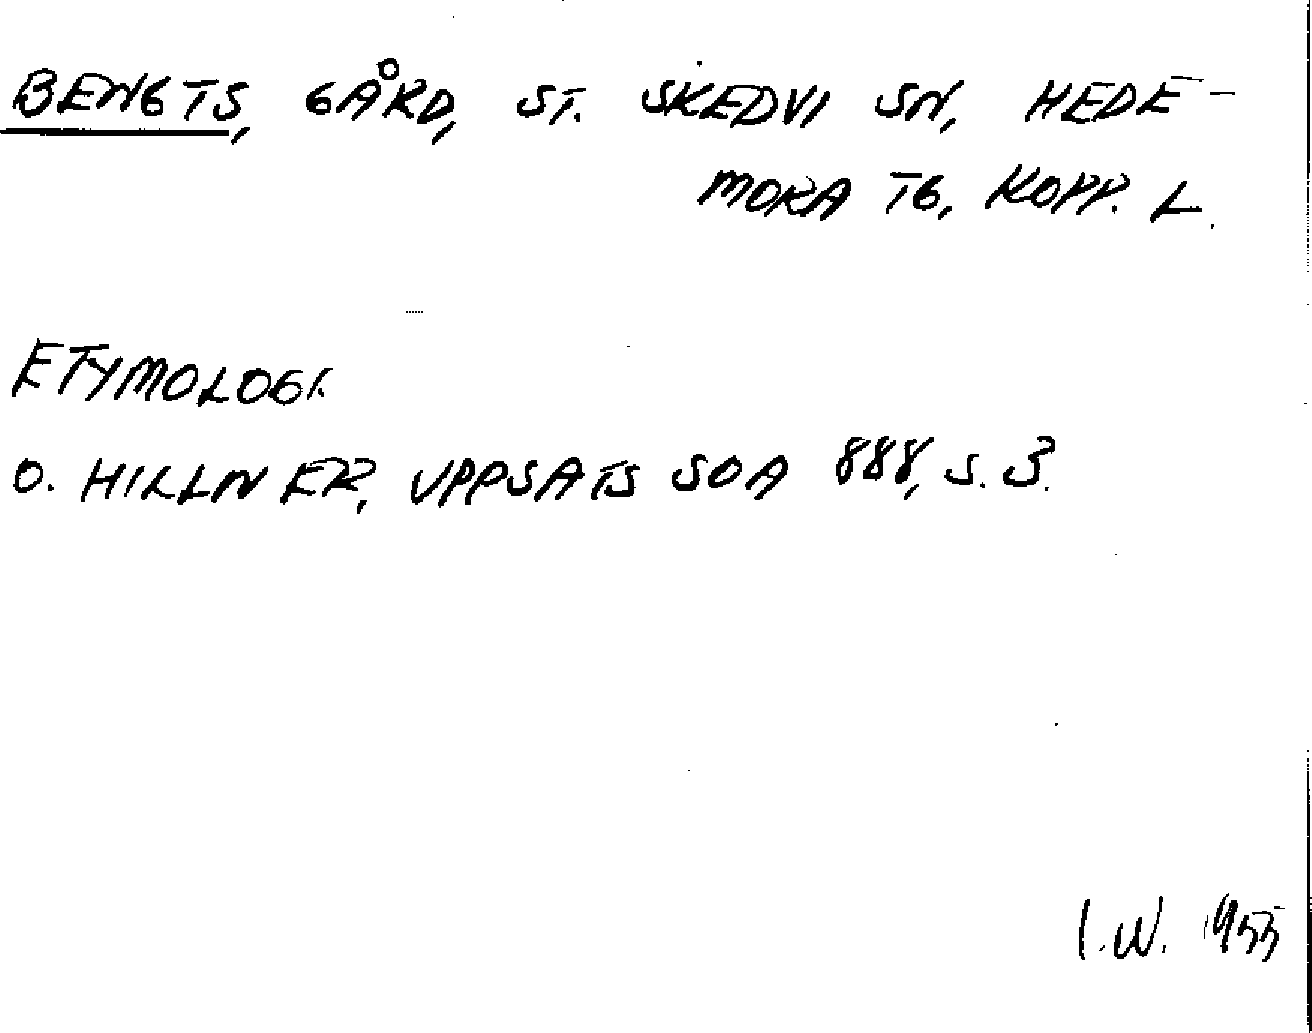 BENGTS, GÅRD, ST. SKEDVI SN, HEDE-
MORA TG, KOPP. L.
ETYMOLOGI
O. HILLNER, UPPSATS SOA 888, S. 3.
I.W. 1955